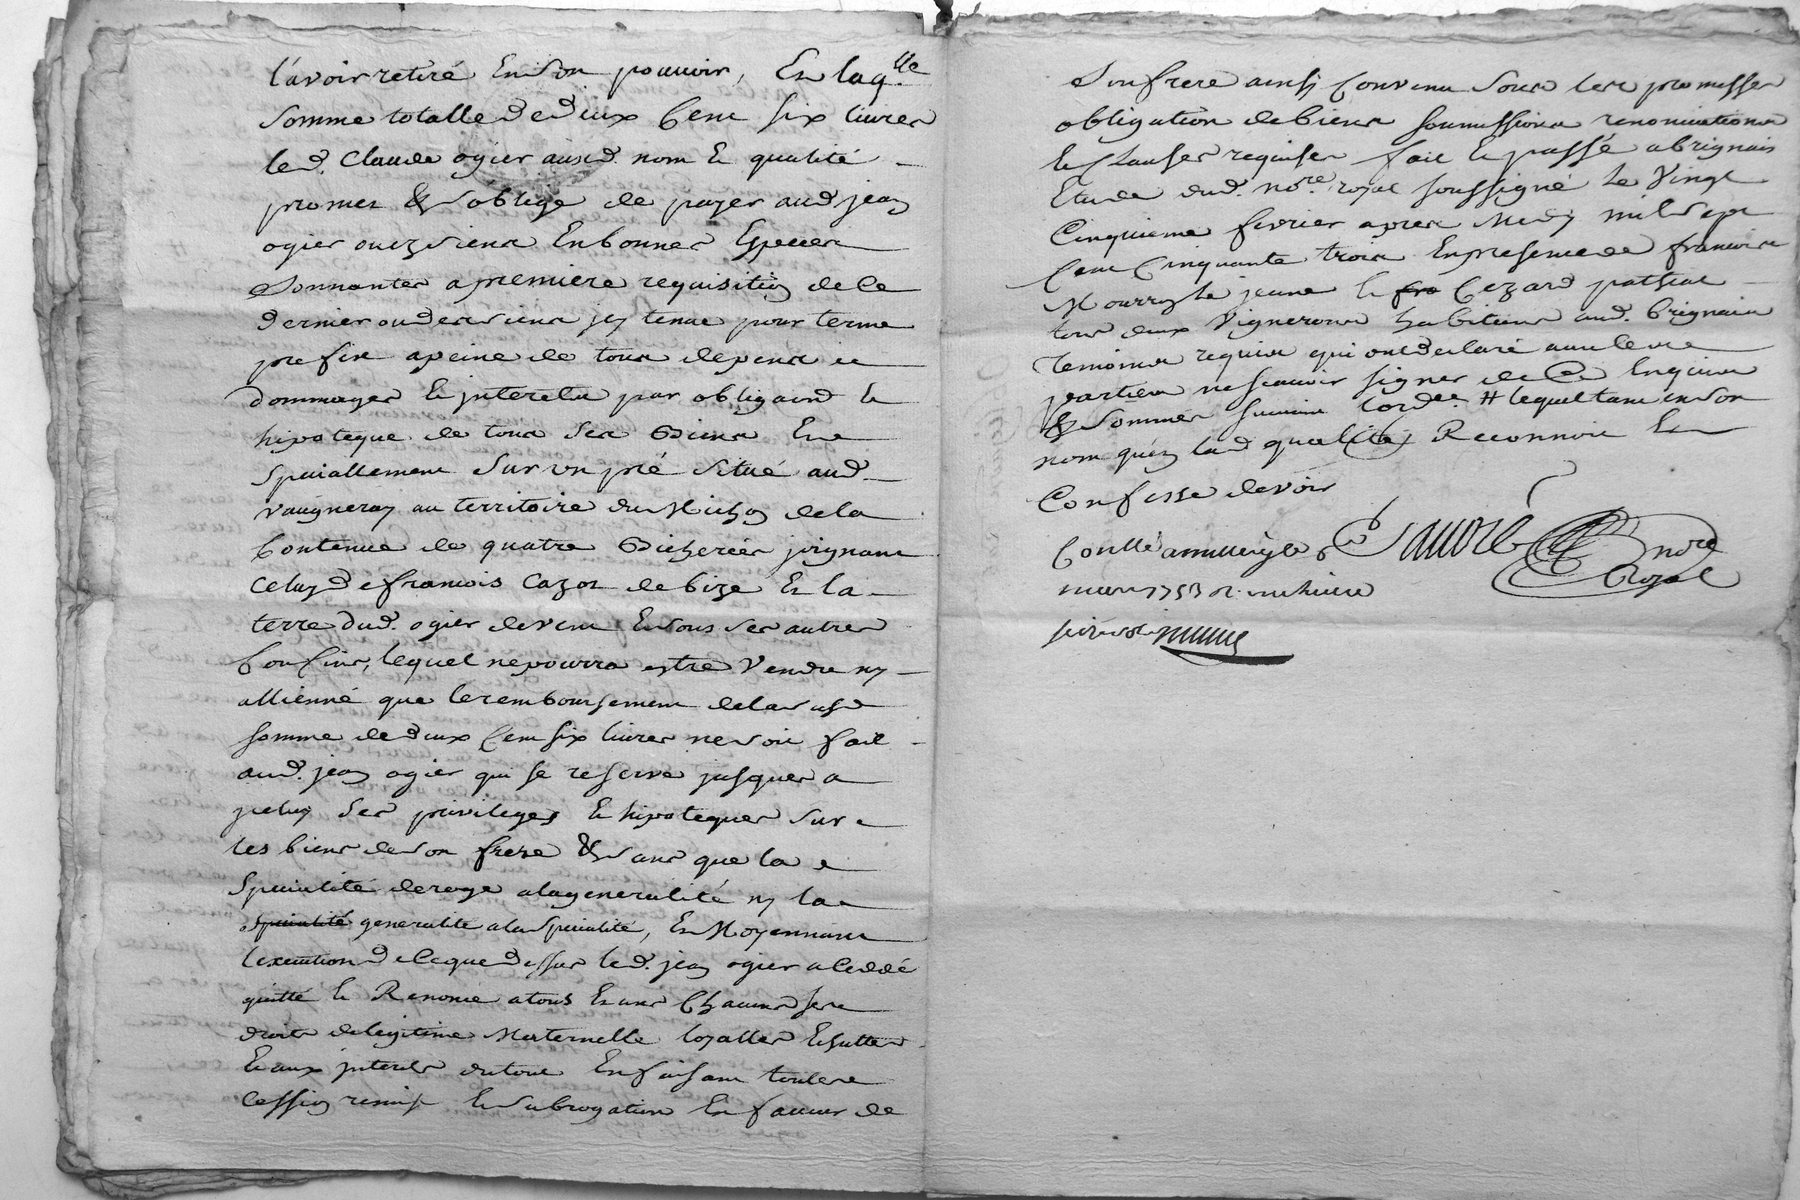 l'avoir retiré En son pouvoir, En laq.lle
Somme totalle de deux Cent six livres
led. Claude ogier aud. nom & qualité
promet & s'oblige de payer aud. jean
ogier ou ez siens En bonnes Especes
Sonnantes a premiere requisition de Ce
dernier ou des siens jcy tenue pour terme
prefix a peine de tous depens et
dommages & jnterets par obligaon &
hipoteque de tous Ses Biens Et
Speciallement Sur un pré Situé aud.
vaugneray au territoire du Michon de la
Contenue de quatre Bicherées joignant
Celuy de francois Cazot de bize Et la
terre dud. ogier devent En sous Ses autres
Confins, lequel ne pourra estre Vendu ny
allienné que le remboursement de la susd.
somme de deux Cent six livres ne soit fait
aud. jean ogier qui se reserve jusques a
jceluy Ses privileges & hipoteques Sur
les biens de son frere & sans que la
Specialité deroge a la generalité ny la
specialité generalité a la Specialité, En Moyennant
l'execution de Ce que dessus led. jean ogier a Ceddé
quitté & Renoncé a tous Et uns Chacuns ses
droits de legitime Maternelle loyalles Echuttes
& aux jnterets du tout En faisant toutes
Cession remise & subrogation En faveur de
Son frere ainsy Convenu Sous les promesses
obligation de biens soumissions renonciations
& Clauses requises fait & passé a brignais
Etude dud. no.re royal soussigné le Vingt
Cinquieme fevrier apres Midy mil sept
Cent Cinquante trois En presence de francois
Mourron le jeune & fra Cezard pathial
tous deux Vignerons habitants aud. brignais
temoins requis qui ont declaré avec les
parties ne scavoir signer de Ce Enquis
& Sommes suivant l'ord.ce # lequel tant en son
nom qu'en lad. qualité Reconnoit &
Confesse devoir
Conllé a
mars 1753
no.re
Royal